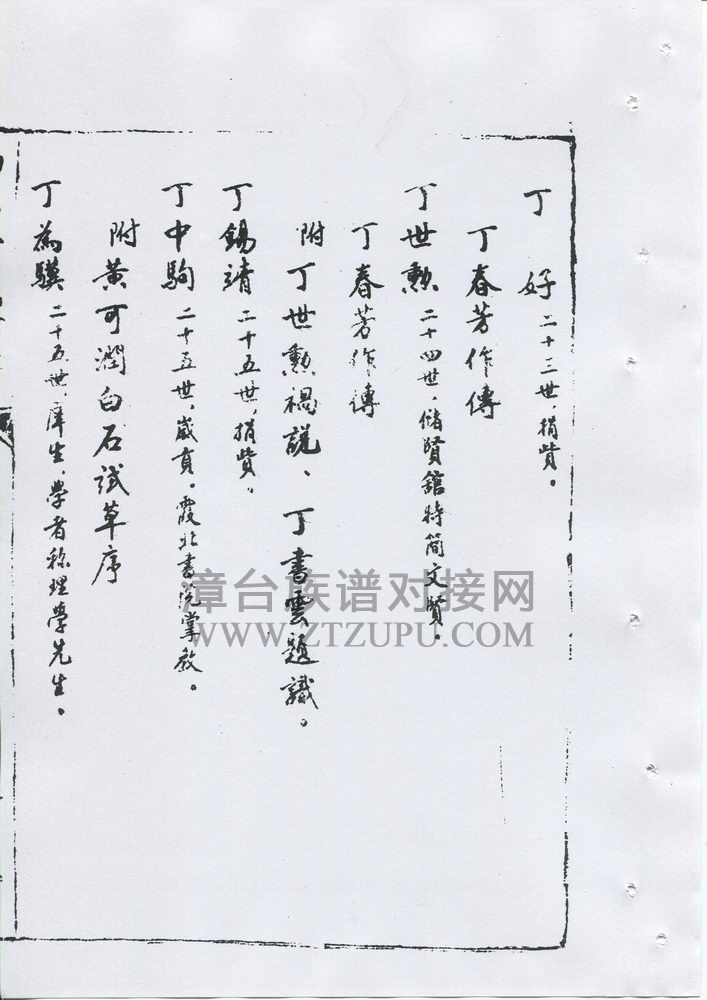 丁　好　二十三世，捐赀。
丁春芳作傳
丁世勲　二十四世，儲賢舘特简文賢。
丁春芳作傳
附　丁世勲禍説、丁書雲題識。
丁錫靖　二十五世，捐赀，
丁中駒　二十五世，歲貢。霞北書院掌教。
附黄可潤白石試草序
丁為驥　二十五世，庠生，學者称理學先生。
漳台族谱对接网
WWW.ZTZUPU.COM